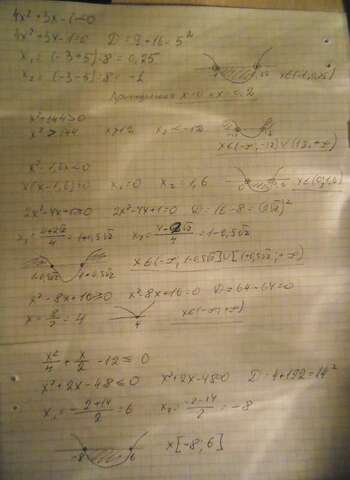 4x² + 3x - 1 < 0
4x² + 3x - 1 = 0   D = 9 + 16 = 5²
x₁ = (-3+5):8 = 0,25
x₂ = (-3-5):8 = -1   x∈(-1; 0,25)
x² > 144   x > 12   x₂ < -12
x∈(-∞; -12)∪(12; +∞)
x² - 1,6x < 0
x(x - 1,6) = 0   x₁ = 0   x₂ = 1,6   0   x∈(0; 1,6)
2x² - 4x + 1 ≥ 0   2x² - 4x + 1 = 0   D = 16 - 8 = (2√2)²
x₁ = (4+2√2)/4 = 1+0,5√2   x₂ = (4-2√2)/4 = 1-0,5√2
1-0,5√2   1+0,5√2   x∈(-∞; 1-0,5√2]∪[1+0,5√2; +∞)
x² - 8x + 16 ≥ 0   x² - 8x + 16 = 0   D = 64 - 64 = 0
x = 8/2 = 4   4   x∈(-∞; +∞)
x²/4 + x/2 - 12 ≤ 0
x² + 2x - 48 ≤ 0   x² + 2x - 48 = 0   D = 4 + 192 = 14²
x₁ = (-2+14)/2 = 6   x₂ = (-2-14)/2 = -8
-8   6   x[-8; 6]